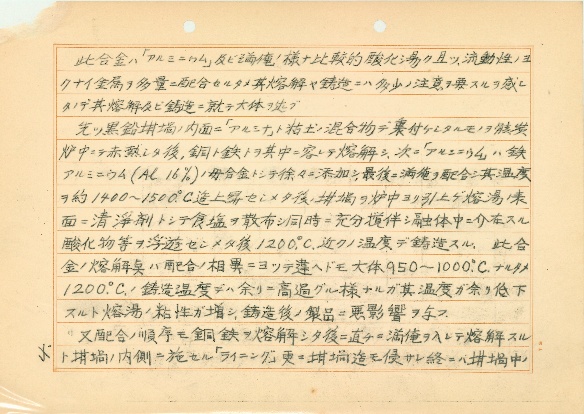 此合金ハ「アルミニウム」及ビ満俺ノ様ナ比較的酸化シ易ク且ツ流動性ノヨ
クナイ金属ヲ多量ニ配合セルタメ其熔解ヤ鋳造ニハ多少ノ注意ヲ要スルヲ感シ
タノデ其熔解及ビ鋳造ニ就テ大体ヲ述ブ
先ヅ黒鉛坩堝ノ内面ニ「アルミナ」ト粘土ノ混合物デ裏付ケシタルモノヲ骸炭
炉中ニテ赤熱シタ後,銅ト鉄トヲ其中ニ容レテ熔解シ,次ニ「アルミニウム」ハ鉄
アルミニウム(AL 16%)ノ母合金トシテ徐々ニ添加シ最後ニ満俺ヲ配合シ其温度
ヲ約1400〜1500°C迄上昇セシメタ後,坩堝ヲ炉中ヨリ引上ゲ熔湯ノ表
面ニ清浄剤トシテ食塩ヲ散布シ同時ニ充分攪伴シ融体中ニ介在スル
酸化物等ヲ浮遊セシメタ後1200°C.近クノ温度デ鋳造スル. 此合
金ノ熔解点ハ配合ノ相異ニヨツテ違ヘドモ大体950〜1000°C.ナルタメ
1200°C.ノ鋳造温度デハ余リニ高過グル様ナルガ其温度ガ余リ低下
スルト熔湯ノ粘性ガ増シ,鋳造後ノ製品ニ悪影響ヲ与フ.
又配合ノ順序モ銅鉄ヲ熔解シタ後ニ直チニ満俺ヲ入レテ熔解スル
ト坩堝ノ内側ニ施セル「ライニング」更ニ坩堝迄モ侵サレ終ニハ坩堝中ノ